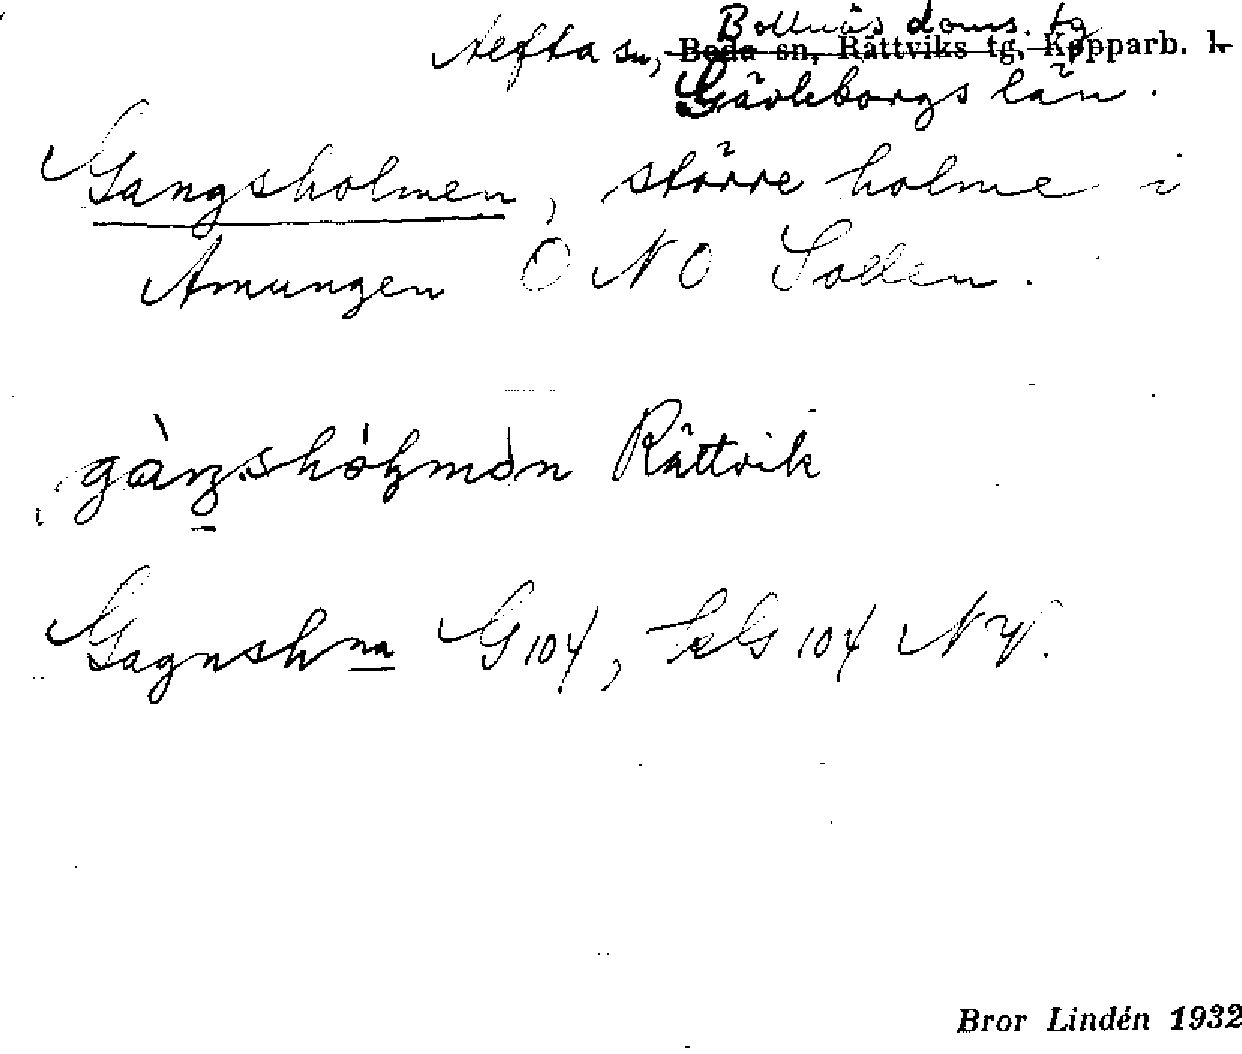 Bollnäs doms. tg
Alfta sn, Boda sn, Rättviks tg, Kopparb. l.
Gävleborgs län.
Gangsholmen, större holme i
Amungen ONO Sollen.
gàŋshòlmən Rättvik
Gagnshna G 104, SkG 104 NV.
Bror Lindén 1932